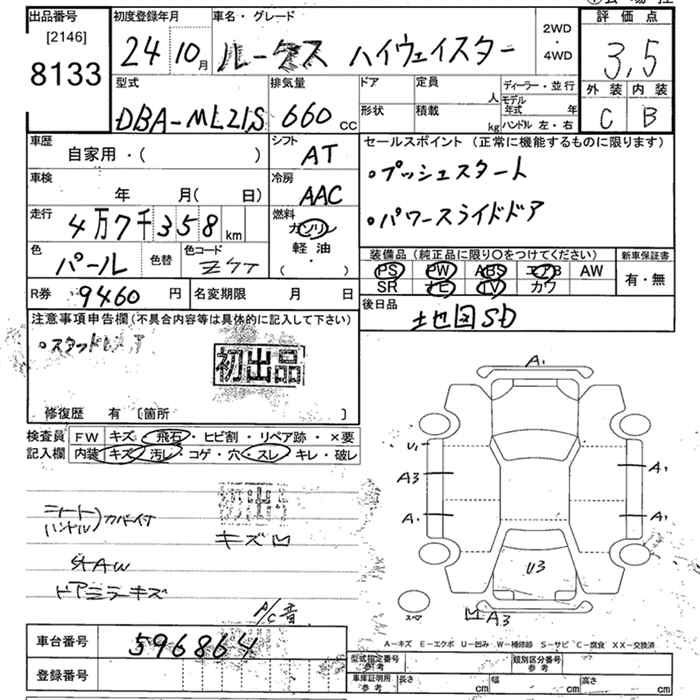 出品番号
[2146]
8133
初度登録年月
24 10月
車名・グレード
ルークス ハイウェイスター
2WD
・
4WD
評価点
3.5
外装 内装
C B
型式
DBA-ML21S
排気量
660 cc
ドア
形状
定員
人
積載
kg
ディーラー・並行
モデル年式 年
ハンドル 左・右
車歴
自家用・( )
シフト
AT
セールスポイント (正常に機能するものに限ります)
・プッシュスタート
・パワースライドドア
車検
年 月(日)
冷房
AAC
走行
4万7千358 km
燃料
ガソリン
軽油
・( )
色
パール
色替
色コード
Z7T
装備品 (純正品に限り○をつけてください)
PS PW ABS エアB AW
SR ナビ TV カワ
新車保証書
有・無
R券
9460 円
名変期限 月 日
後日品
地図SD
注意事項申告欄(不具合内容等は具体的に記入して下さい)
初出品
修復歴 有 〔箇所 〕
検査員記入欄
FW キズ・飛石・ヒビ割・リペア跡・×要
内装 キズ・汚レ・コゲ・穴・スレ・キレ・破レ
初出
キズ凹
シート
ハンドル)カバー付
社AW
ドアミラーキズ
A/C音
A1
U1
A3
A1
A1
A1
U3
凹A3
スペア
車台番号
596864
登録番号
A-キズ E-エクボ U-凹み W-補修跡 S-サビ C-腐食 XX-交換済
型式指定番号 参考
類別区分番号 参考
車庫証明用 参考
長さ cm
幅 cm
高さ cm